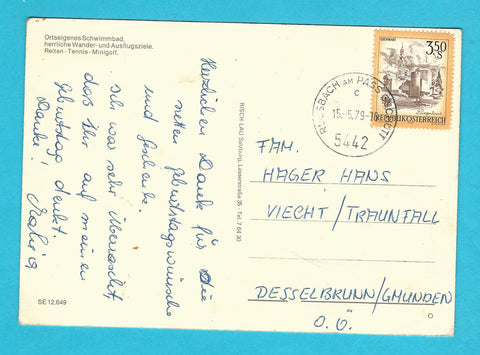 Ortseigenes Schwimmbad,
herrliche Wander- und Ausflugsziele.
Reiten - Tennis - Minigolf.
Herzlichen Dank für die
netten Geburtstagswünsche
und Geschenke.
Ich war sehr überrascht,
das Ihr auf meinen
Geburtstag denkt.
Danke!
SE 12.649
RISCH-LAU Salzburg
Tel. 7 64 30
3,50
S
REPUBLIK ÖSTERREICH
RUSSBACH AM PASS GSCHÜTT
c
15.-5.79-16
5442
FAM.
HAGER HANS
VIECHT/TRAUNFALL
DESSELBRUNN/GMUNDEN
O.Ö.